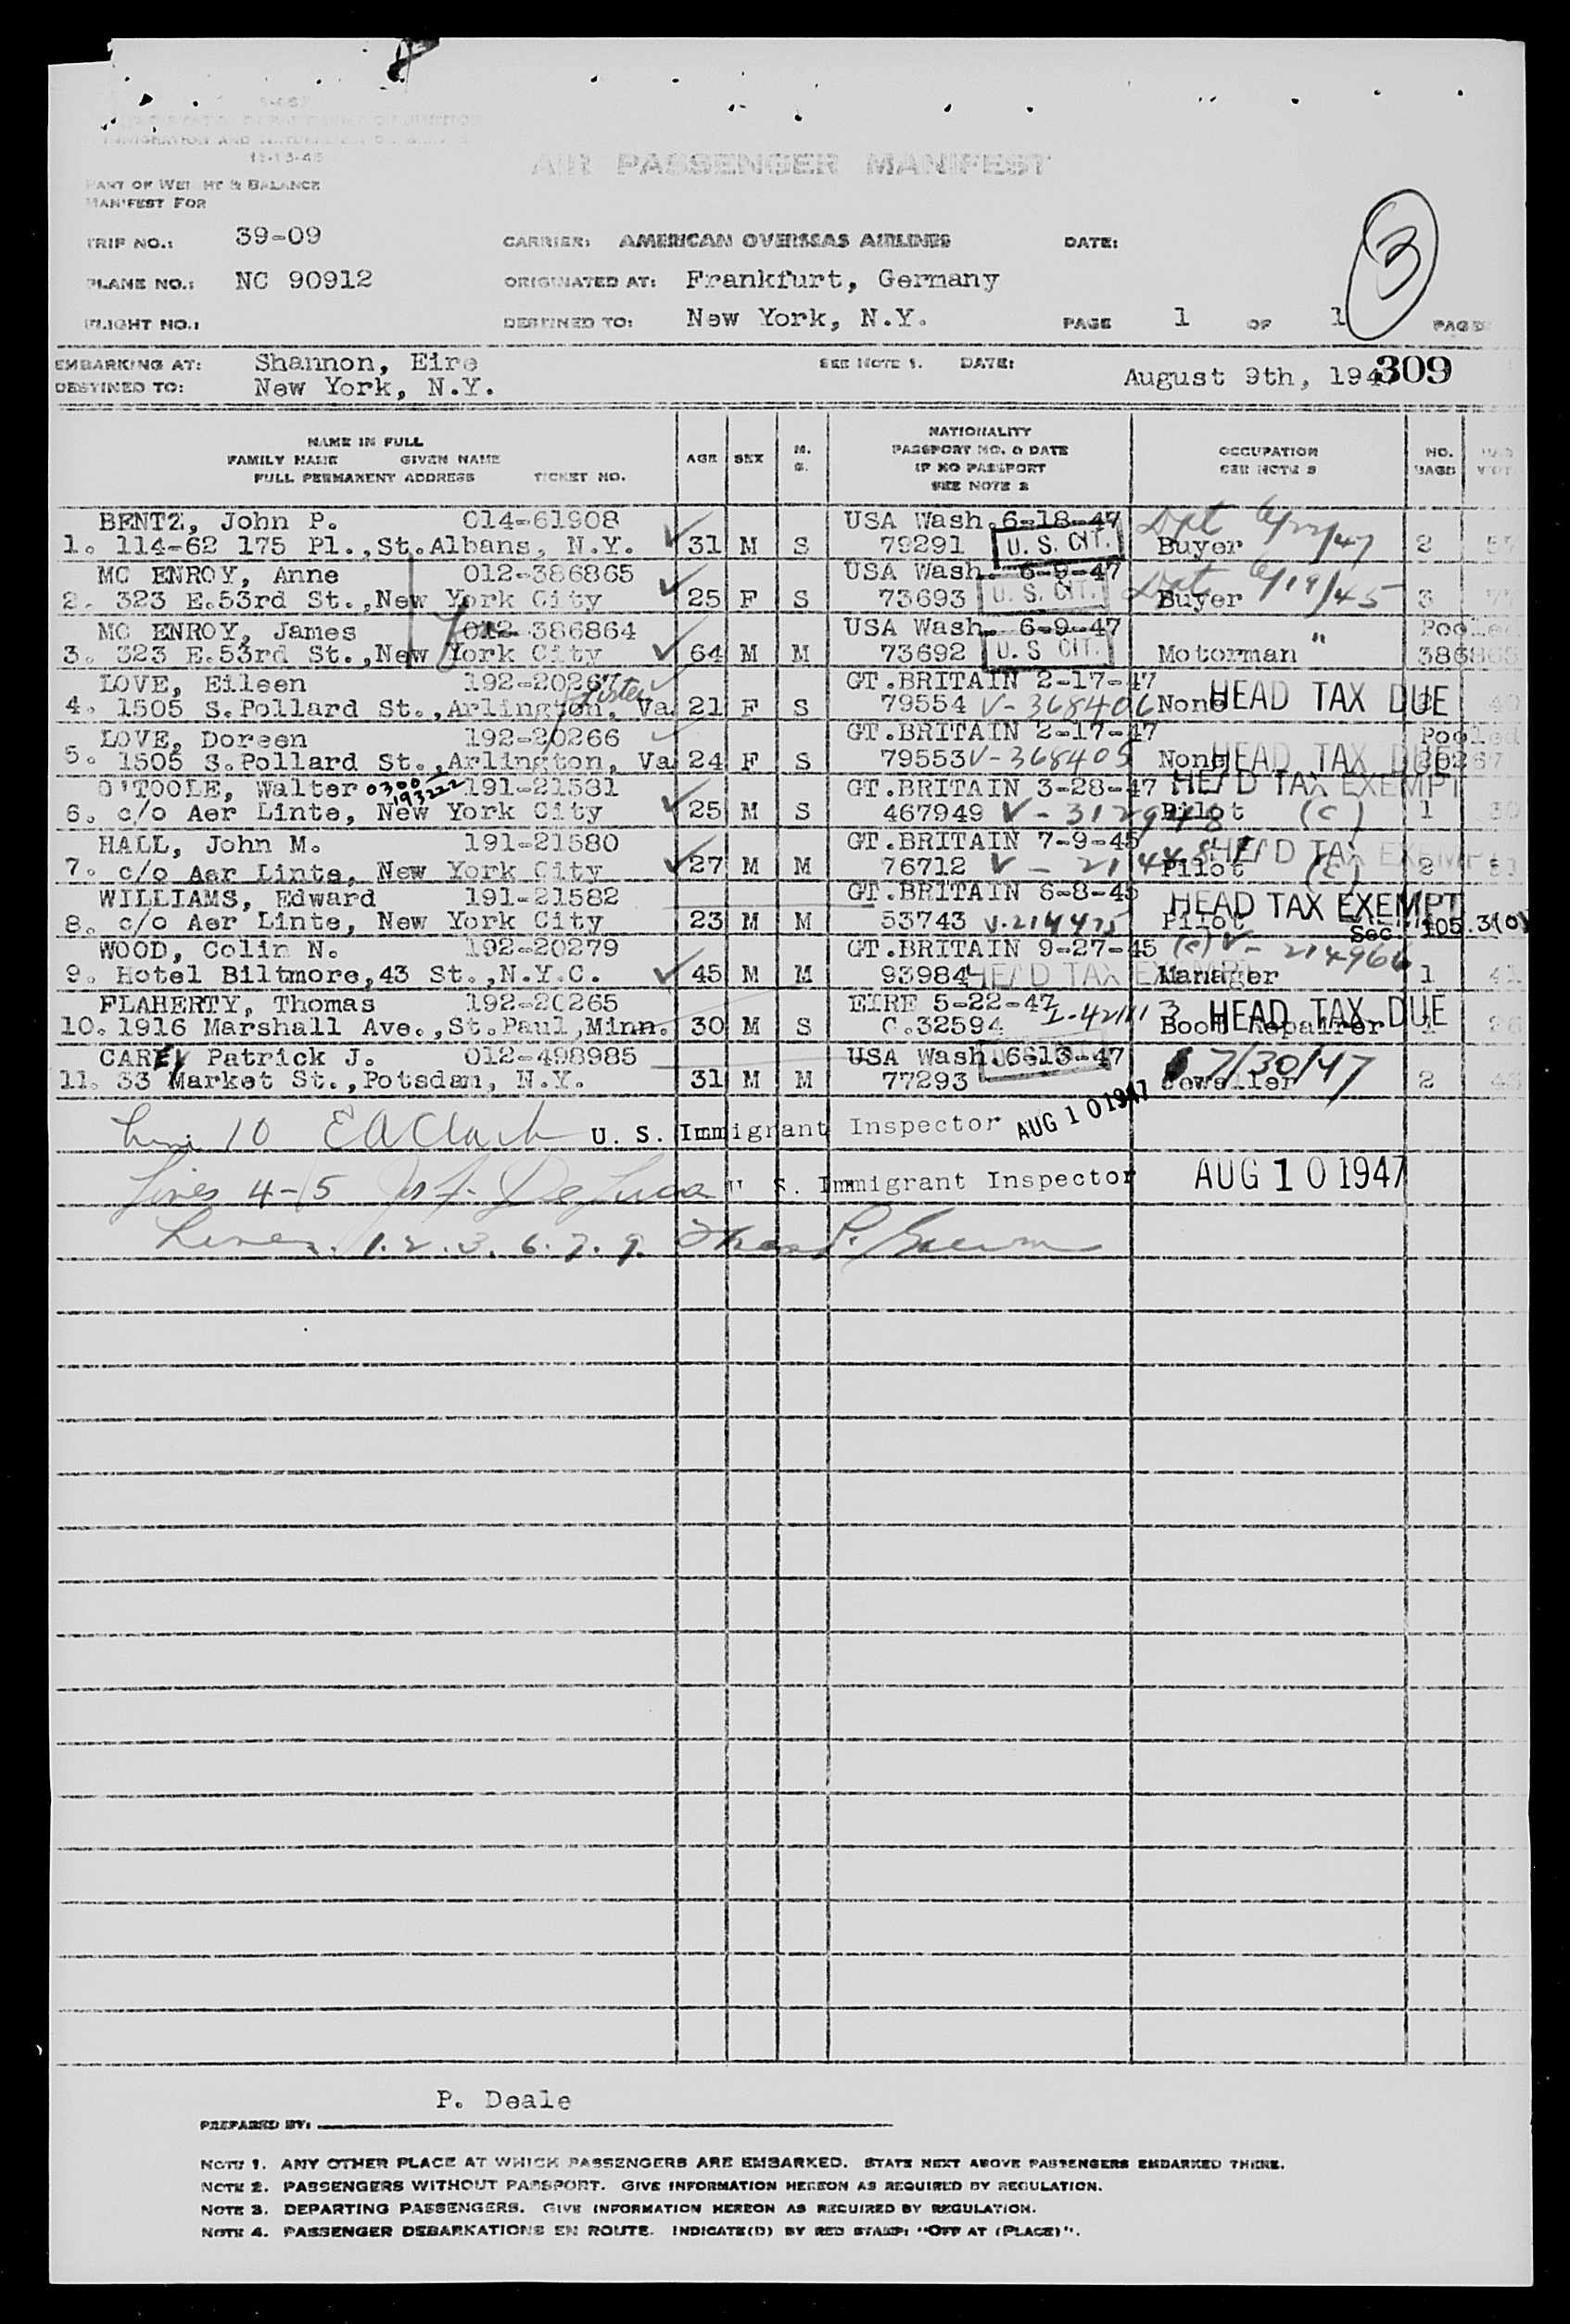 11-13-45
AIR PASSENGER MANIFEST
PART OF WEIGHT & BALANCE
MANIFEST FOR
3
TRIP NO.: 39-09 CARRIER: AMERICAN OVERSEAS AIRLINES DATE:
PLANE NO.: NC 90912 ORIGINATED AT: Frankfurt, Germany
FLIGHT NO.: DESTINED TO: New York, N.Y. PAGE 1 OF 1 PAGES
EMBARKING AT: Shannon, Eire SEE NOTE 1. DATE: August 9th, 194 309
DESTINED TO: New York, N.Y.
NAME IN FULL
FAMILY NAME GIVEN NAME
FULL PERMANENT ADDRESS TICKET NO. AGE SEX M. S. NATIONALITY PASSPORT NO. & DATE IF NO PASSPORT SEE NOTE 2 OCCUPATION SEE NOTE 3 NO. BAGS
BENTZ, John P. 014-61908 USA Wash. 6-18-47
1. 114-62 175 Pl., St.Albans, N.Y. 31 M S 79291 U.S. CIT. Buyer 2
MC ENROY, Anne 012-386865 USA Wash. 6-9-47
2. 323 E.53rd St., New York City 25 F S 73693 U.S. CIT. Buyer 6/19/45 3
MC ENROY, James 012-386864 USA Wash. 6-9-47 Pooled
3. 323 E.53rd St., New York City 64 M M 73692 U.S CIT. Motorman " 386865
LOVE, Eileen 192-20267 GT.BRITAIN 2-17-47
4. 1505 S.Pollard St., Arlington, Va 21 F S 79554 V-368406 None HEAD TAX DUE
sister
LOVE, Doreen 192-20266 GT.BRITAIN 2-17-47 Pooled
5. 1505 S.Pollard St., Arlington, Va 24 F S 79553 V-368405 None HEAD TAX DUE 20267
O'TOOLE, Walter 0300 193222 191-21581 GT.BRITAIN 3-28-47 HEAD TAX EXEMPT
6. c/o Aer Linte, New York City 25 M S 467949 Pilot (c) 1 30
HALL, John M. 191-21580 GT.BRITAIN 7-9-45 HEAD TAX EXEMPT
7. c/o Aer Linte, New York City 27 M M 76712 Pilot (c) 2 51
WILLIAMS, Edward 191-21582 GT.BRITAIN 6-8-45 HEAD TAX EXEMPT
8. c/o Aer Linte, New York City 23 M M 53743 V.214475 Pilot Sec 105.3(0)
WOOD, Colin N. 192-20279 GT.BRITAIN 9-27-45 (c) V-214966
9. Hotel Biltmore, 43 St., N.Y.C. 45 M M 93984 HEAD TAX EXEMPT Manager 1 41
FLAHERTY, Thomas 192-20265 EIRE 5-22-47
10. 1916 Marshall Ave., St.Paul, Minn. 30 M S C.32594 I-421113 Boot Repairer HEAD TAX DUE
CAREY Patrick J. 012-498985 USA Wash. 6-13-47 7/30/47
11. 33 Market St., Potsdam, N.Y. 31 M M 77293 Jeweller 2
Line 10 E A Clark U. S. Immigrant Inspector AUG 10 1947
Lines 4-5 De Lucca U S. Immigrant Inspector AUG 10 1947
Lines. 1. 2. 3. 6. 7. 9.
P. Deale
PREPARED BY:
NOTE 1. ANY OTHER PLACE AT WHICH PASSENGERS ARE EMBARKED. STATE NEXT ABOVE PASSENGERS EMBARKED THERE.
NOTE 2. PASSENGERS WITHOUT PASSPORT. GIVE INFORMATION HEREON AS REQUIRED BY REGULATION.
NOTE 3. DEPARTING PASSENGERS. GIVE INFORMATION HEREON AS REQUIRED BY REGULATION.
NOTE 4. PASSENGER DEBARKATIONS EN ROUTE. INDICATE(D) BY RED STAMP: "OFF AT (PLACE)".